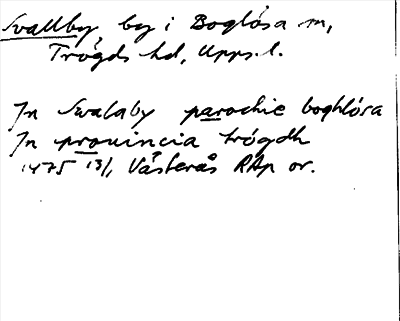 Svallby, by i Boglösa sn,
Trögds hd, Upps. l.
In Swalaby parochie boghlösa
In prouincia trögdh
1475 13/1 Västerås RAp or.